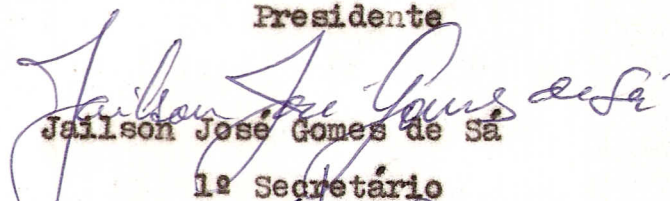 Presidente
Jailson José Gomes de Sá
Jailson José Gomes de Sá
1º Secretário